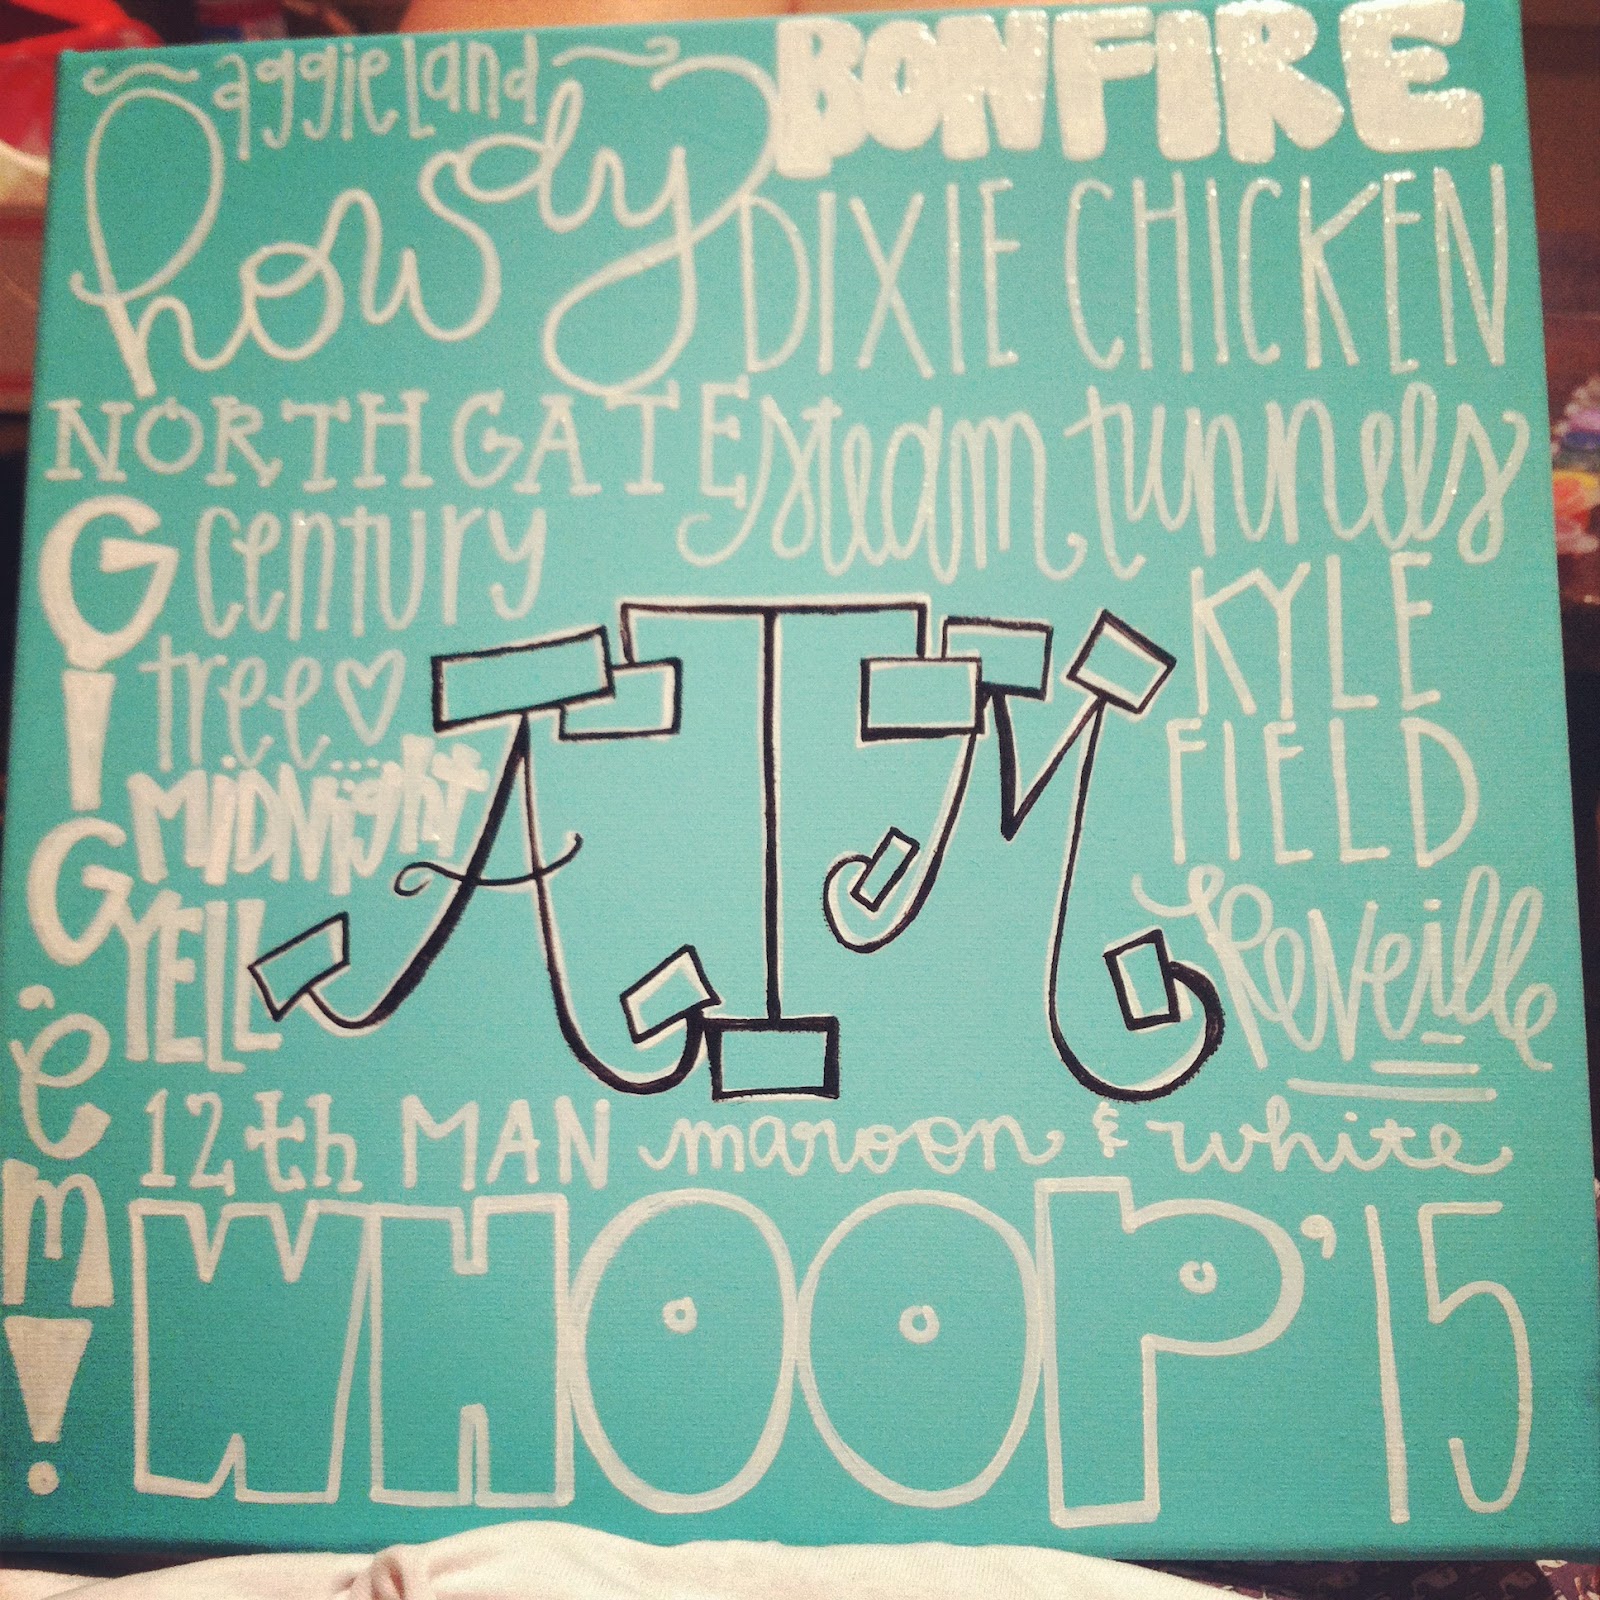 aggieland
howdy
BONFIRE
DIXIE CHICKEN
NORTHGATE
steam tunnels
GIG 'em!
century
tree
MIDNight
YELL
ATM
KYLE
FIELD
Reveille
12th MAN
maroon & white
WHOOP '15